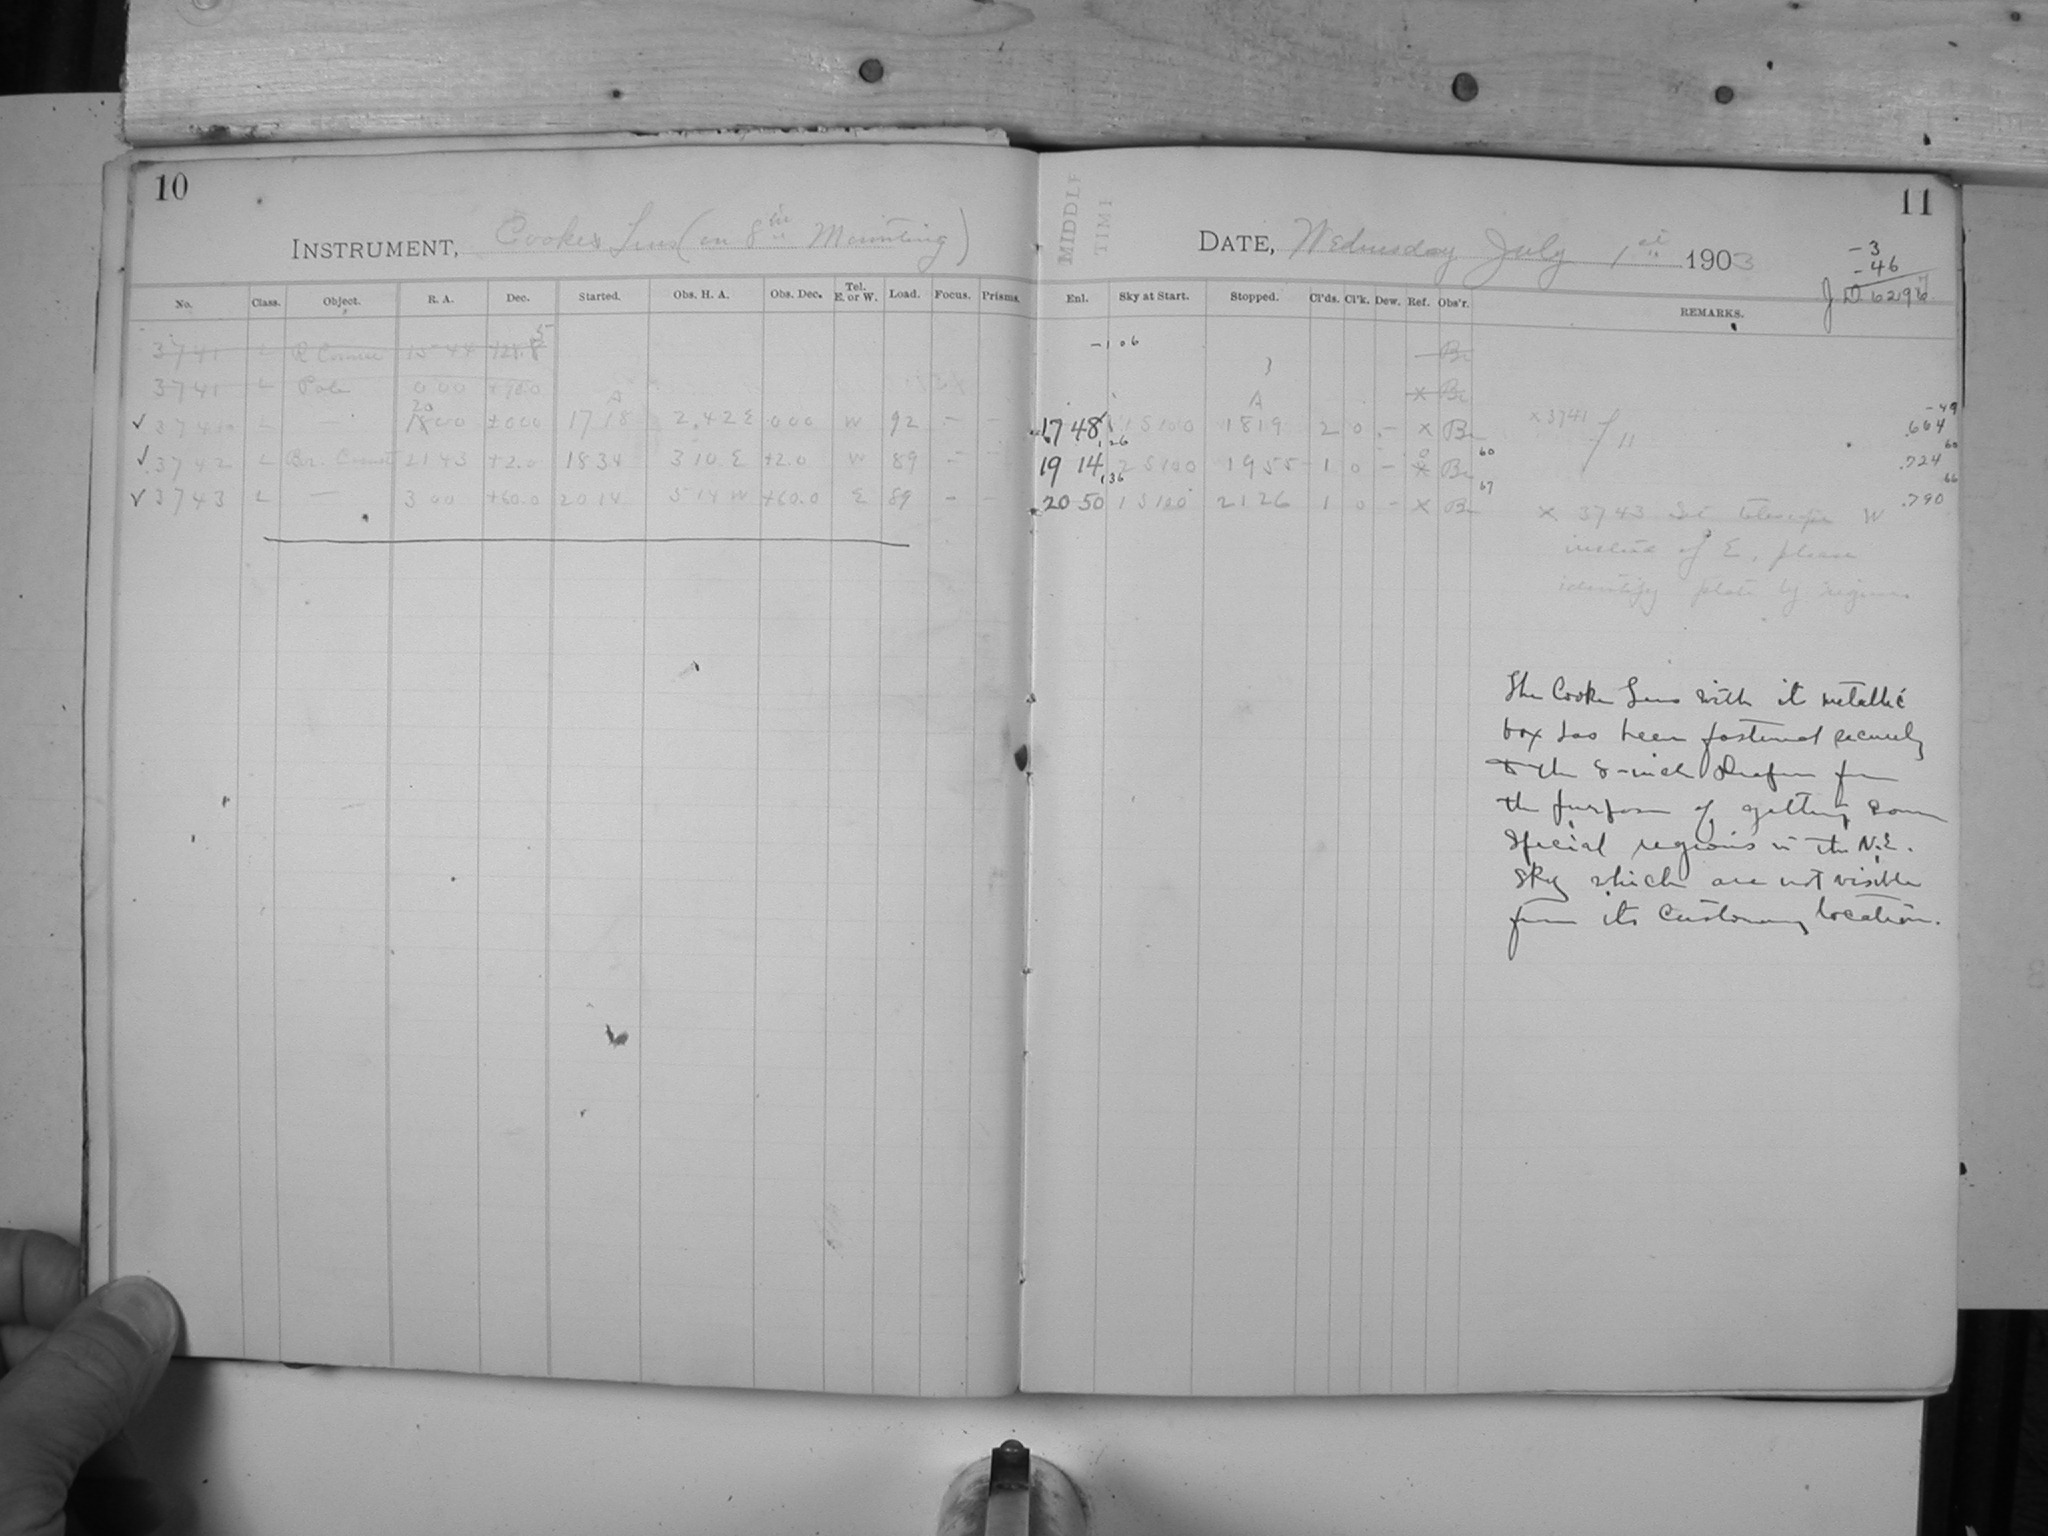 10
INSTRUMENT, Cooke Lens (on 8 in Mounting)
No. Class. Object. R. A. Dec. Started. Obs. H. A. Obs. Dec. Tel. E. or W. Load. Focus. Prisms.
3741 L R Coronae 15 44 +28.5
3741 L Pole 0 00 +90.0
✓ 3741 L — 20 00 +000 1718 2.42 E 000 W 92 — —
✓ 3742 L Bor. Comet 21 43 +2.0 1834 3 10 E +2.0 W 89 — —
✓ 3743 L — 3 00 +60.0 2014 5 14 W +60.0 E 89 — —
MIDDLE
TIME
11
DATE, Wednesday July 1st 1903
-3
-46
J D 6296
Enl. Sky at Start. Stopped. Cl'ds. Cl'k. Dew. Ref. Obs'r. REMARKS.
-1 06 — Br
x Br
17 48 1 S 100 1819 2 0 - x Br x 3741 f 11 -49 .664
1 26
19 14 2 S 100 1955 1 0 - x Br 60 .724 60
1 36
20 50 1 S 100 2126 1 0 - x Br 67 .790 66
x 3743 Set telescope W
instead of E, please
identify plate by region
The Cooke Lens with it metallic
box has been fastened securely
to the 8-inch Draper for
the purpose of getting some
special regions in the N.E.
sky which are not visible
from its customary location.